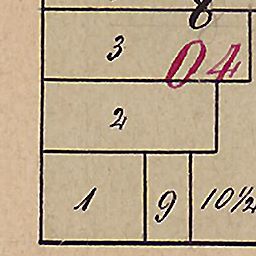 8
3
04
2
1 9 10½